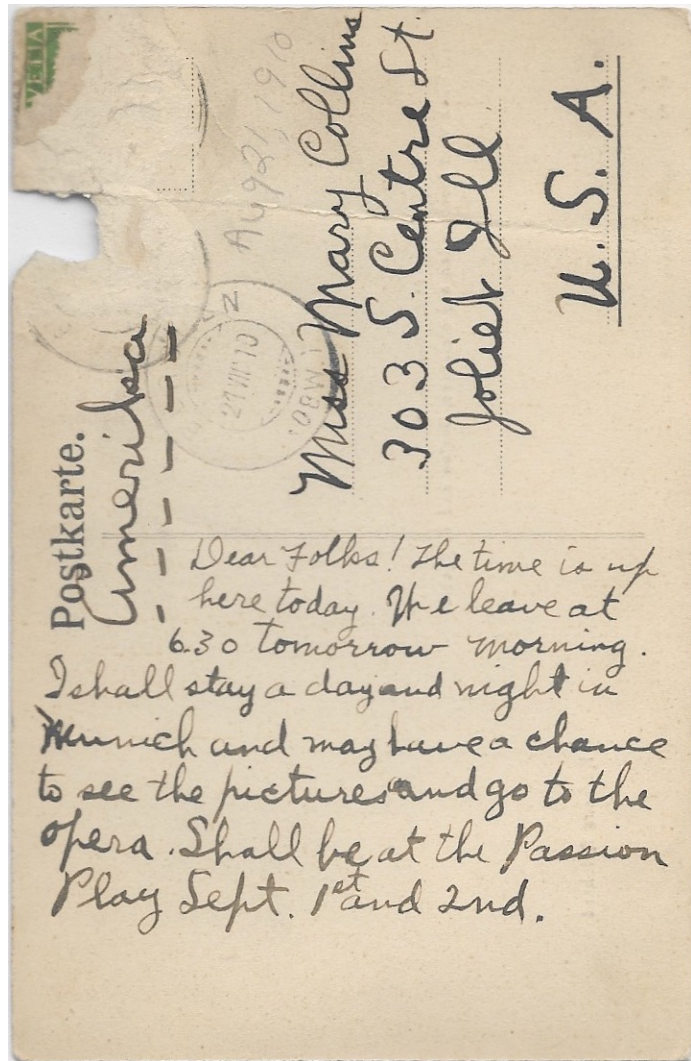 Postkarte.
Amerika
Aug 21, 1910
21 VIII 10
Miss Mary Collins
303 S. Centre St.
Joliet Ill.
U. S. A.
Dear Folks! The time is up
here today. We leave at
6.30 tomorrow morning.
I shall stay a day and night in
Munich and may have a chance
to see the pictures and go to the
opera. Shall be at the Passion
Play Sept. 1st and 2nd.